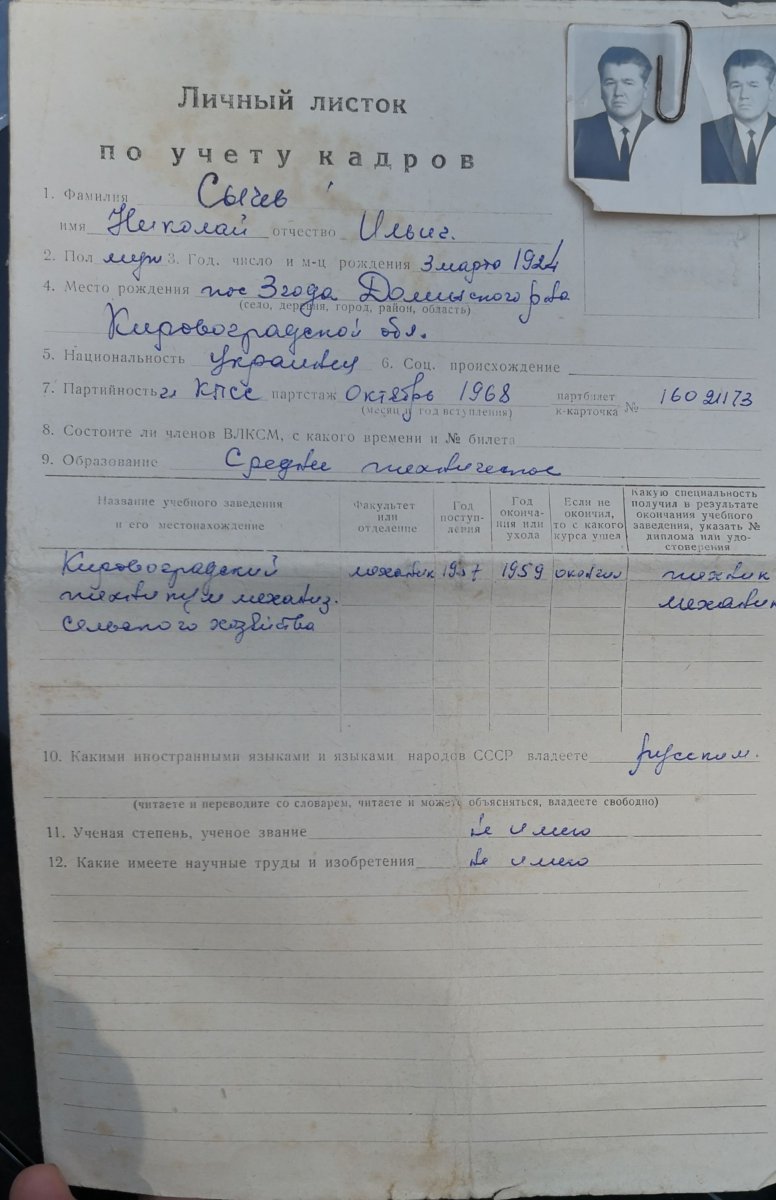 Личный листок
по учету кадров
1. Фамилия Сычев
имя Николай отчество Ильич.
2. Пол муж 3. Год, число и м-ц рождения 3 марта 1924
4. Место рождения пос Згода р-на
(село, деревня, город, район, область)
Кировоградской обл.
5. Национальность украинец 6. Соц. происхождение
7. Партийность чл КПСС партстаж Октябрь 1968 партбилет к-карточка №
(месяц и год вступления)
8. Состоите ли членов ВЛКСМ, с какого времени и № билета
9. Образование Среднее техническое
Название учебного заведения и его местонахождение
Факультет или отделение
Год поступления
Год окончания или ухола
Если не окончил, то с какого курса ушел
Какую специальность получил в результате окончания учебного заведения, указать № диплома или удостоверения
Кировоградский механик 1957 1959 окончил техник
техникум механиз. механик
сельского хозяйства
10. Какими иностранными языками и языками народов СССР владеете русским.
(читаете и переводите со словарем, читаете и можете объясняться, владеете свободно)
11. Ученая степень, ученое звание не имею
12. Какие имеете научные труды и изобретения не имею